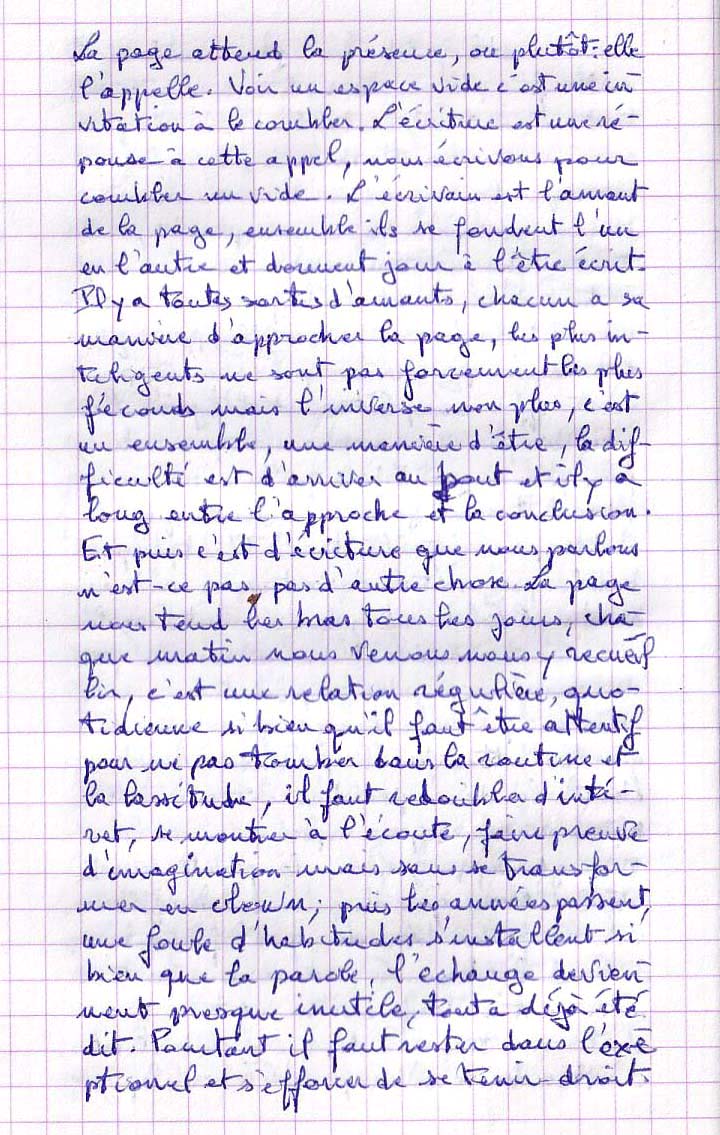 La page attend la présence, ou plutôt: elle
l'appelle. Voir un espace vide c'est une in
vitation à le combler. L'écriture est une ré-
ponse à cette appel, nous écrivons pour
combler un vide. L'écrivain est l'amant
de la page, ensemble ils se fondent l'un
en l'autre et donnent jour à l'être écrit.
Il y a toutes sortes d'amants, chacun a sa
manière d'approcher la page, les plus in-
telligents ne sont pas forcement les plus
féconds mais l'inverse non plus, c'est
un ensemble, une manière d'être, la dif-
ficulté est d'arriver au bout et il y a
long entre l'approche et la conclusion.
Et puis c'est d'écriture que nous parlons
n'est-ce pas, pas d'autre chose. La page
nous tend les bras tous les jours, cha-
que matin nous venons nous y recueil
lir, c'est une relation régulière, quo-
tidienne si bien qu'il faut être attentif
pour ne pas tomber dans la routine et
la lassitude, il faut redoubler d'inté-
ret, se montrer à l'écoute, faire preuve
d'imagination mais sans se transfor-
mer en clown; puis les années passent,
une foule d'habitudes s'installent si
bien que la parole, l'échange devien
nent presque inutile, tout a déjà été
dit. Pourtant il faut rester dans l'exe
ptionel et s'efforcer de se tenir droit.